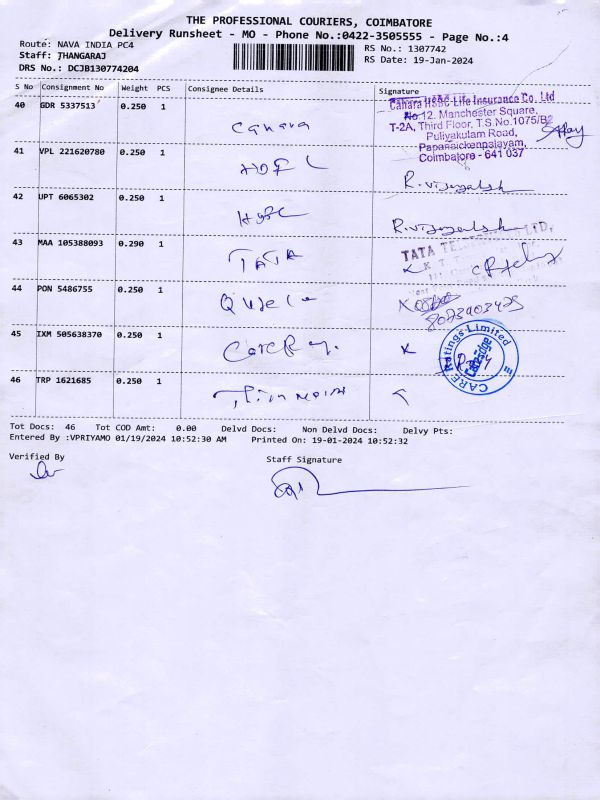 THE PROFESSIONAL COURIERS, COIMBATORE
Delivery Runsheet - MO - Phone No.:0422-3505555 - Page No.:4
Route: NAVA INDIA PC4
RS No.: 1307742
Staff: JHANGARAJ
RS Date: 19-Jan-2024
DRS No.: DCJB130774204
S No Consignment No Weight PCS Consignee Details Signature
40 GDR 5337513 0.250 1 Canara
Canara HSBC Life Insurance Co. Ltd
No.12, Manchester Square,
T-2A, Third Floor, T.S.No.1075/B2
Puliyakulam Road,
Papanaickenpalayam,
Coimbatore - 641 037
41 VPL 221620780 0.250 1 HDFC R.vijayalsh
42 UPT 6065302 0.250 1 R.vijayalsh
43 MAA 105388093 0.290 1 TATA
TATA LTD.
44 PON 5486755 0.250 1
8073903425
45 IXM 505638370 0.250 1 Care
CARE Ratings Limited
46 TRP 1621685 0.250 1
Tot Docs: 46 Tot COD Amt: 0.00 Delvd Docs: Non Delvd Docs: Delvy Pts:
Entered By :VPRIYAMO 01/19/2024 10:52:30 AM Printed On: 19-01-2024 10:52:32
Verified By
Staff Signature